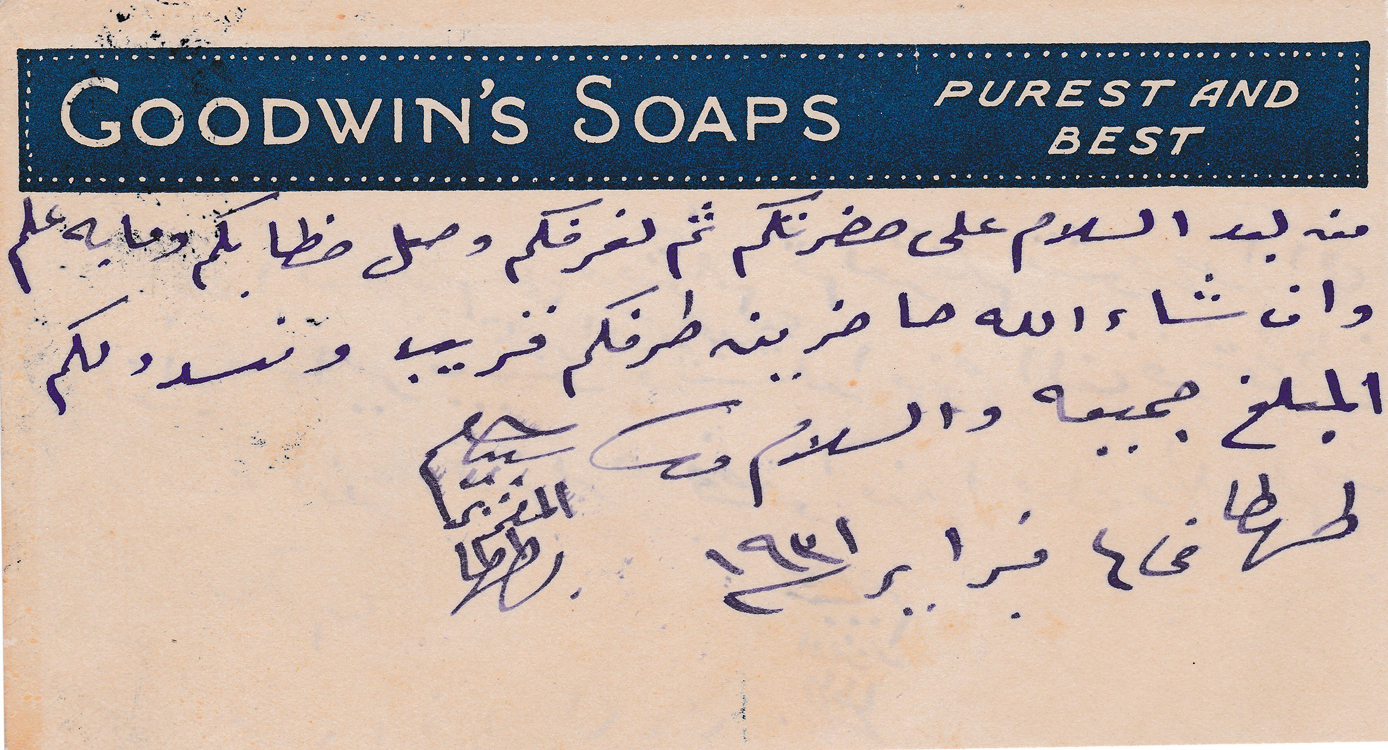 GOODWIN'S SOAPS
PUREST AND
BEST
من بعد السلام على حضرتكم ثم نعرفكم وصل خطابكم ومابه علم
وان شاء الله حاضرين طرفكم قريب ونسدد لكم
المبلغ جميعه والسلام
طهطا فى ٤ فبراير ١٩٣١
بطهطا